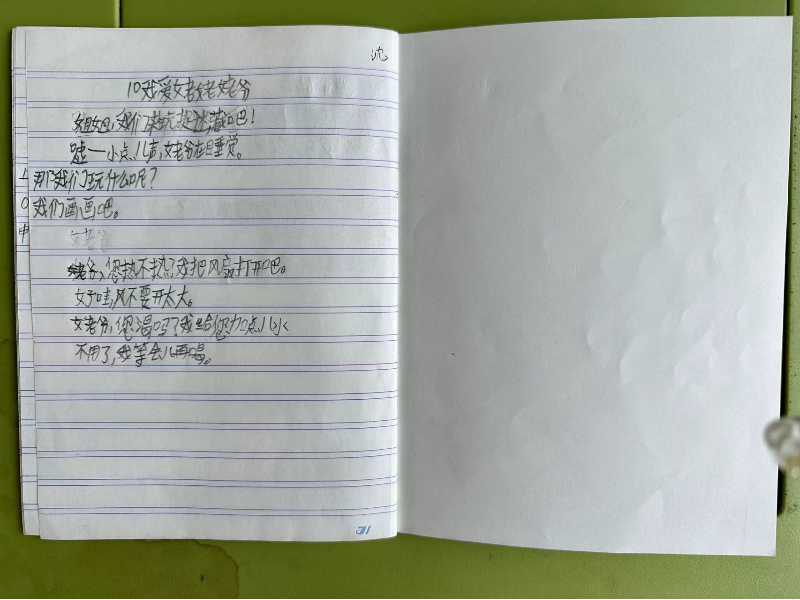 沈
10 我爱姥姥姥爷
姐姐,我们来玩捉迷藏吧!
嘘一小点儿声,姥爷在睡觉。
那我们玩什么呢?
我们画画吧。
姥爷
姥爷,您热不热?我把风扇打开吧。
好哇,风不要开太大。
姥爷,您渴吗?我给您加点儿水
不用了,我等会儿再喝。